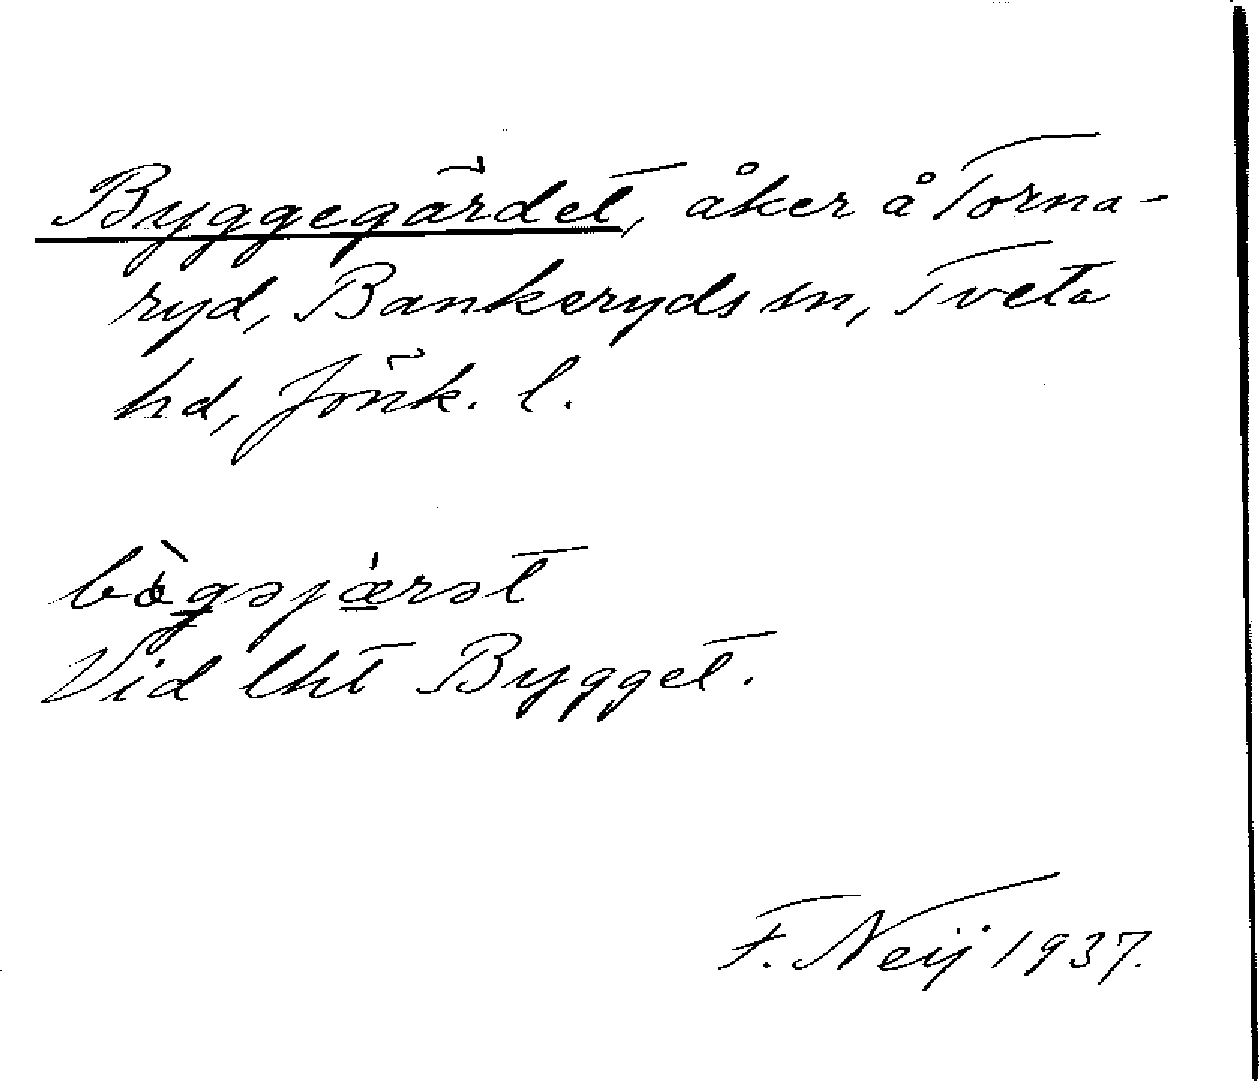 Byggegärdet, åker å Torna-
ryd, Bankeryds sn, Tveta
hd, Jönk. l.
Vid lht Bygget.
F. Neij 1937.